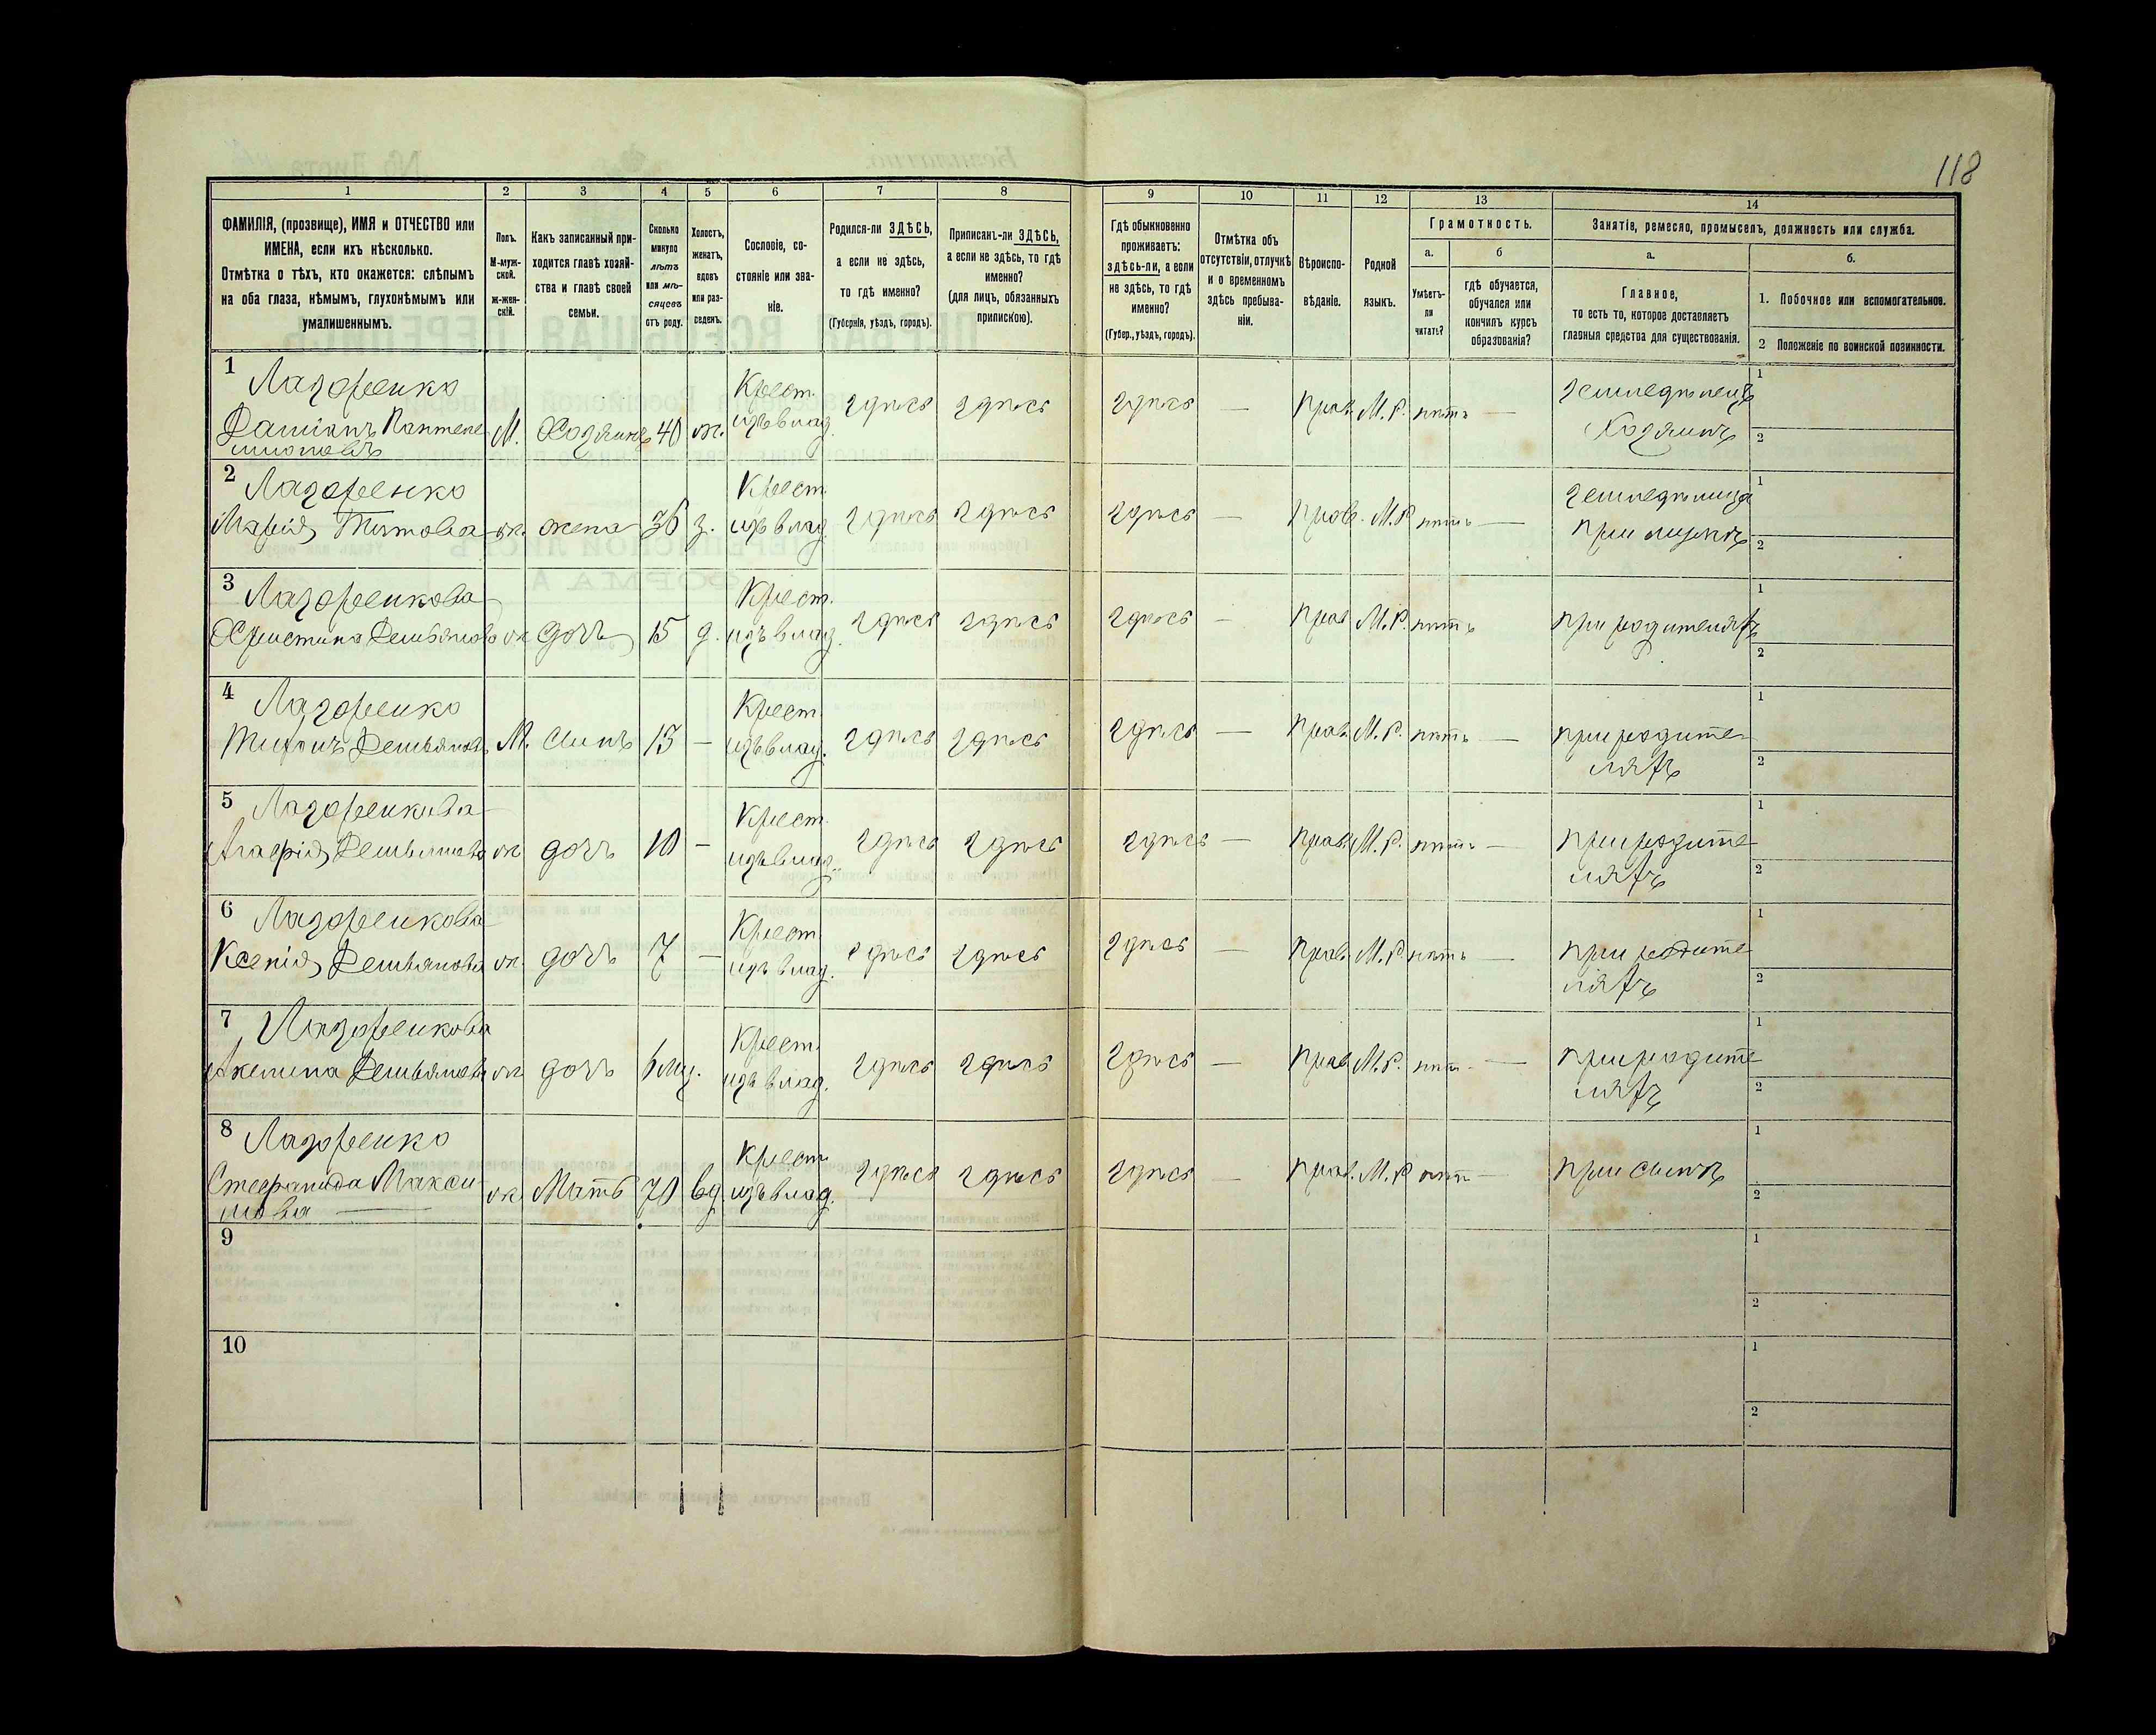 118
1 2 3 4 5 6 7 8 9 10 11 12 13 14
ФАМИЛІЯ, (прозвище), ИМЯ и ОТЧЕСТВО или
ИМЕНА, если ихъ нѣсколько.
Отмѣтка о тѣхъ, кто окажется: слѣпымъ
на оба глаза, нѣмымъ, глухонѣмымъ или
умалишеннымъ.
Полъ.
М-муж-
ской.
Ж-жен-
скій.
Какъ записанный при-
ходится главѣ хозяй-
ства и главѣ своей
семьи.
Сколько
минуло
лѣтъ
или мѣ-
сяцевъ
отъ роду.
Холостъ,
женатъ,
вдовъ
или раз-
веденъ.
Сословіе, со-
стояніе или зва-
ніе.
Родился-ли ЗДѢСЬ,
а если не здѣсь,
то гдѣ именно?
(Губернія, уѣздъ, городъ).
Приписанъ-ли ЗДѢСЬ,
а если не здѣсь, то гдѣ
именно?
(для лицъ, обязанныхъ
припиской).
Гдѣ обыкновенно
проживаетъ:
здѣсь-ли, а если
не здѣсь, то гдѣ
именно?
(Губер., уѣздъ, городъ).
Отмѣтка объ
отсутствіи, отлучкѣ
и о временномъ
здѣсь пребыва-
ніи.
Вѣроиспо-
вѣданіе.
Родной
языкъ.
Грамотность.
а.
Умѣетъ-
ли
читать?
б
гдѣ обучается,
обучался или
кончилъ курсъ
образованія?
Занятіе, ремесло, промыселъ, должность или служба.
а.
Главное,
то есть то, которое доставляетъ
главныя средства для существованія.
б.
1. Побочное или вспомогательное.
2 Положеніе по воинской повинности.
1 Лазоренко Крест. земледѣлецъ 1
Даміанъ Пантеле М. Хозяинъ 40 ж. изъ влад. здѣсь здѣсь здѣсь — Прав. М. Р. нѣтъ — Хозяинъ 2
имоновъ
2 Лазоренко Крест. земледѣлица 1
Марія Титова ж. жена 36 з. изъ влад. здѣсь здѣсь здѣсь — Прав. М. Р. нѣтъ — При мужѣ 2
3 Лазоренкова Крест. 1
Христина Демьянова ж. дочь 15 д. изъ влад. здѣсь здѣсь здѣсь — Прав. М. Р. нѣтъ при родителяхъ 2
4 Лазоренко Крест. 1
Демьяновъ М. сынъ 13 — изъ влад. здѣсь здѣсь здѣсь — Прав. М. Р. нѣтъ — при родите-
ляхъ 2
5 Лазоренкова Крест. 1
Агафія Демьянова ж. дочь 10 — изъ влад. здѣсь здѣсь здѣсь — Прав. М. Р. нѣтъ — при родите-
ляхъ 2
6 Лазоренкова Крест. 1
Ксенія Демьянова ж. дочь 7 — изъ влад. здѣсь здѣсь здѣсь — Прав. М. Р. нѣтъ — при родите-
ляхъ 2
7 Лазоренкова Крест. 1
Акелина Демьянова ж. дочь 6 мц. изъ влад. здѣсь здѣсь здѣсь — Прав. М. Р. нѣт. — при родите-
ляхъ 2
8 Лазоренко Крест. 1
Стефанида Макси ж. Мать 70 вд изъ влад. здѣсь здѣсь здѣсь — Прав. М. Р нѣт — при сынѣ 2
мова —
9 1
2
10 1
2